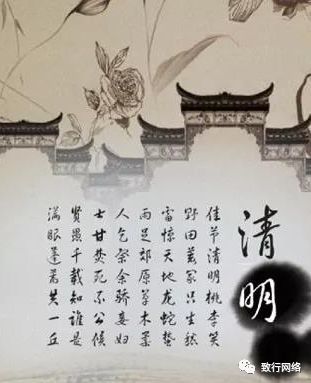 清明
佳节清明桃李笑
野田荒冢只生愁
雷惊天地龙蛇蛰
雨足郊原草木柔
人乞祭余骄妾妇
士甘焚死不公候
贤愚千载知谁是
满眼蓬蒿共一丘
致行网络